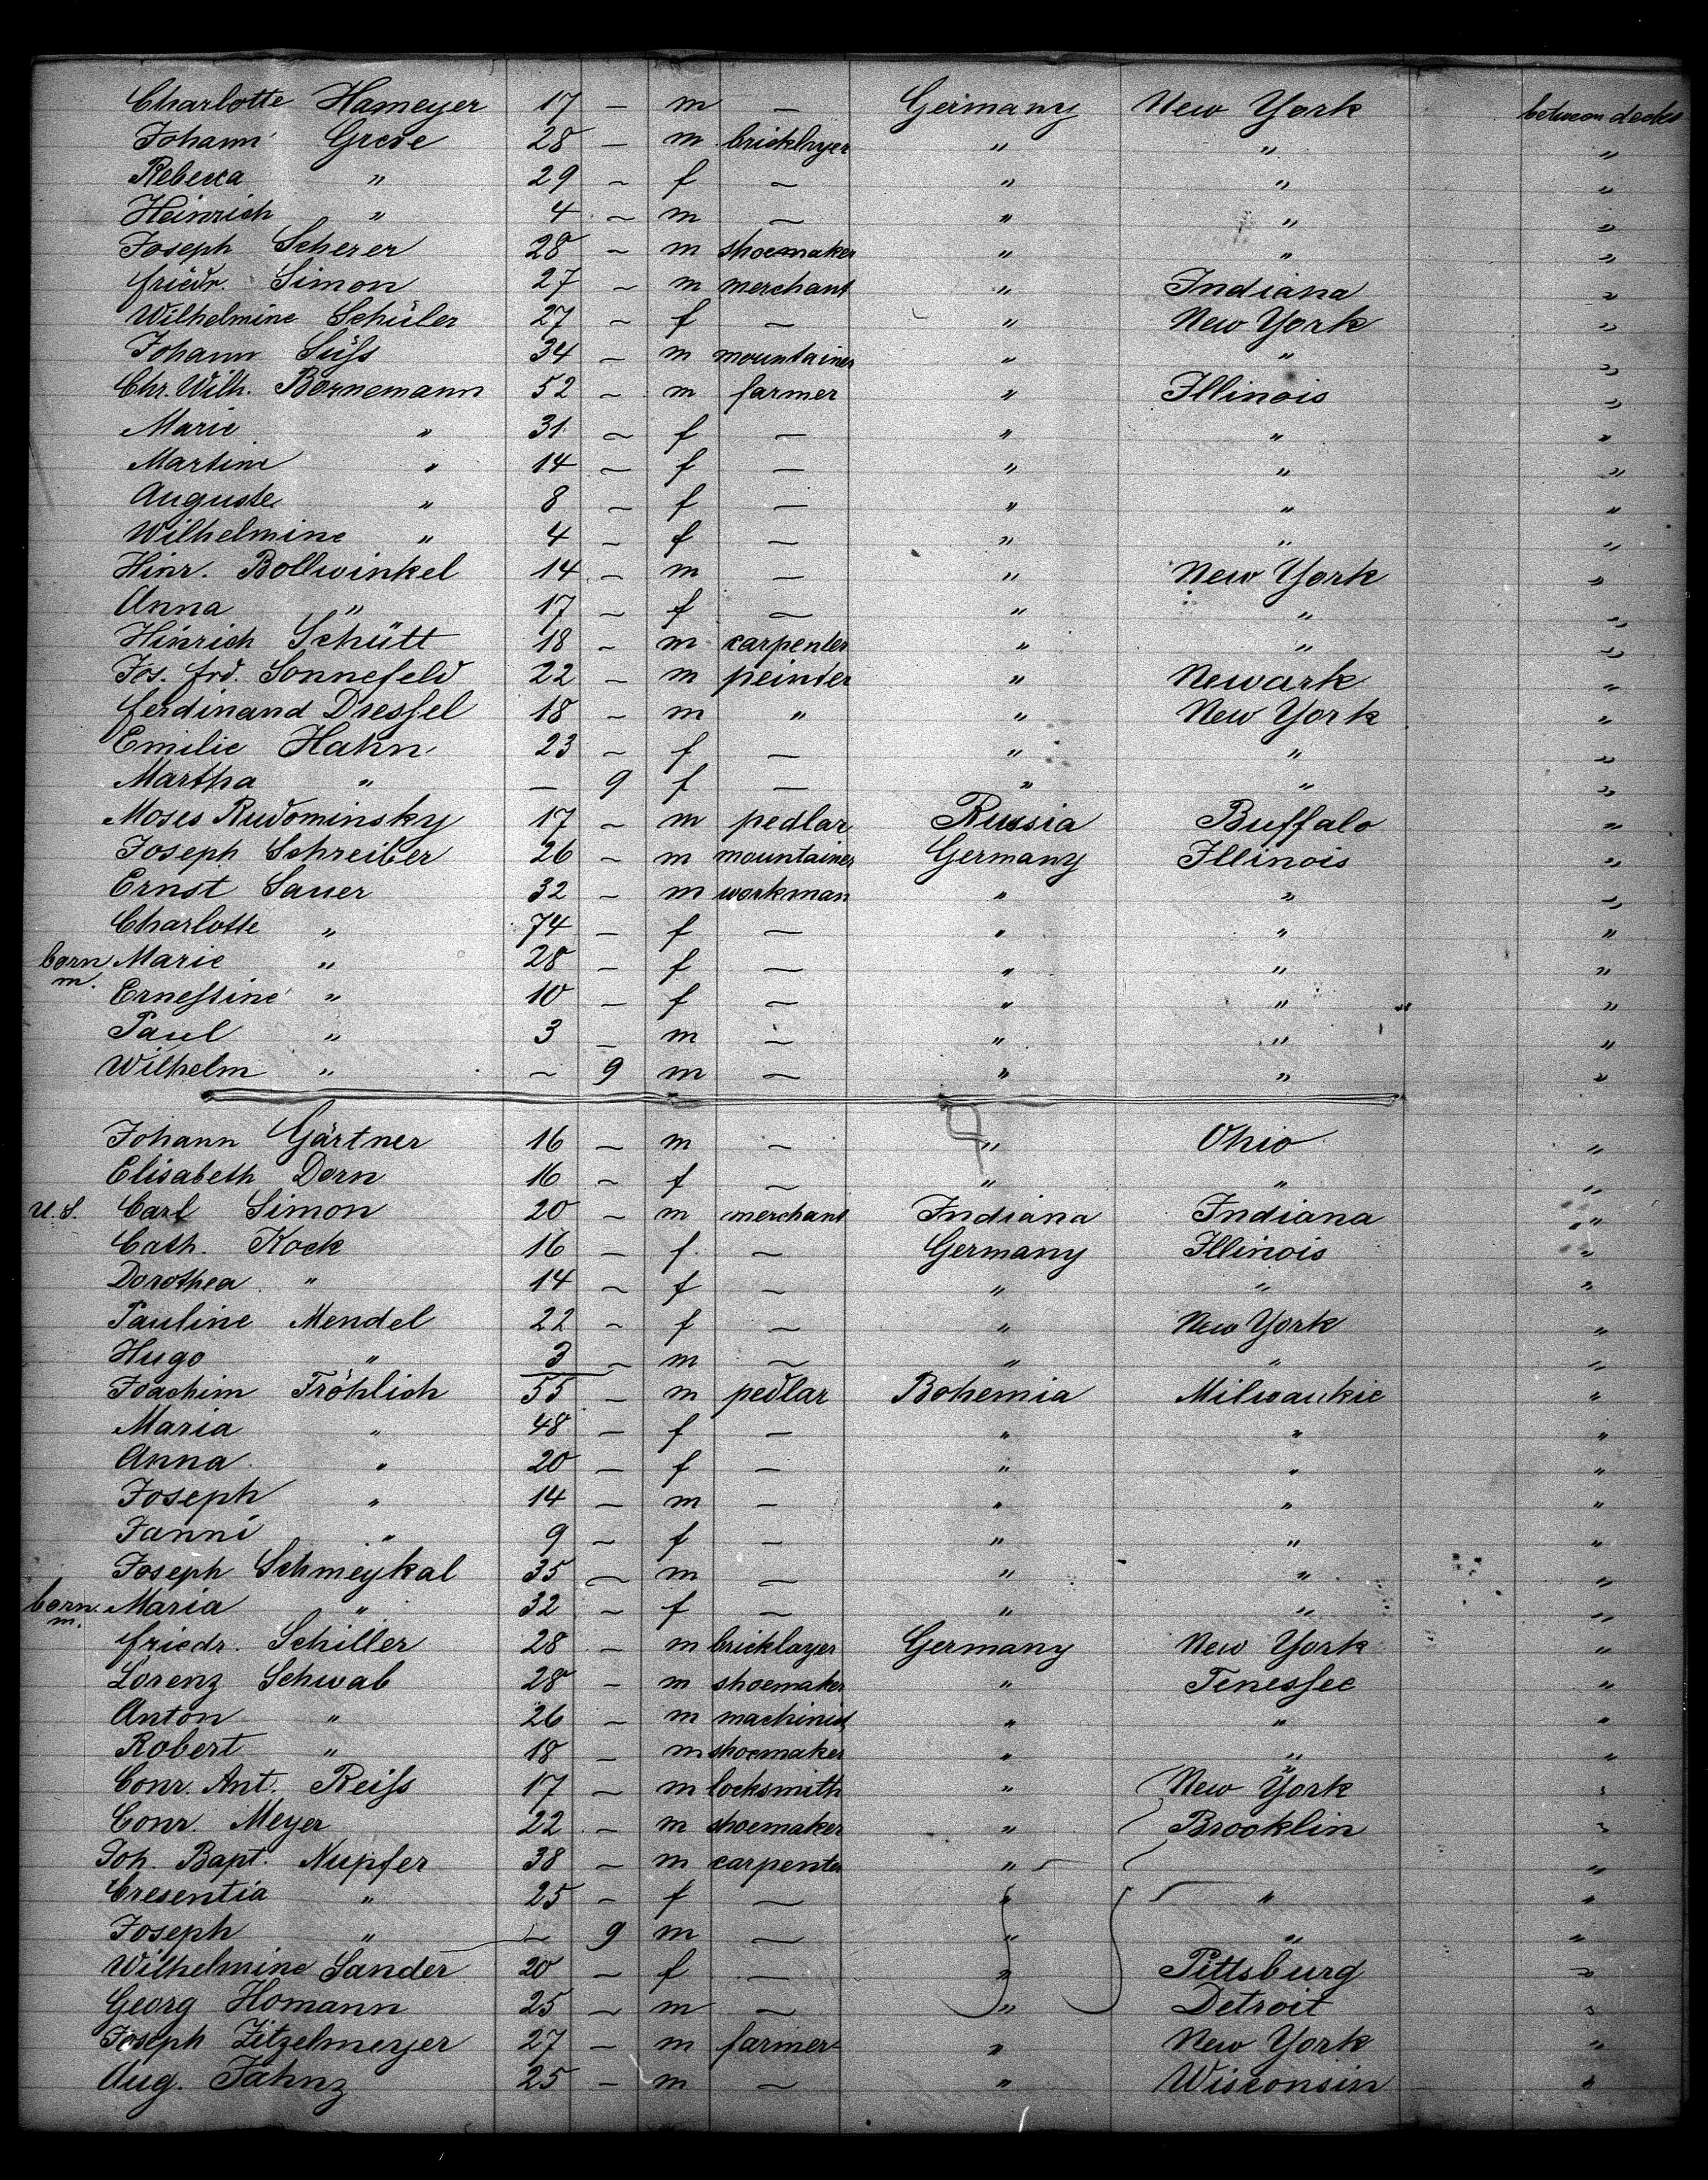 Charlotte Hameyer 17 — m — Germany New York between decks
Johann Greve 28 — m bricklayer " " "
Rebecca " 29 — f — " " "
Heinrich " 4 — m — " " "
Joseph Scherer 28 — m shoemaker " " "
Friedr. Simon 27 — m merchant " Indiana "
Wilhelmine Schüler 27 — f — " New York "
Johann Süſs 34 — m mountainer " " "
Chr. Wilh. Bornemann 52 — m farmer " Illinois "
Marie " 31 — f — " " "
Martine " 14 — f — " " "
Auguste " 8 — f — " " "
Wilhelmine " 4 — f — " " "
Hinr. Bollwinkel 14 — m — " New York "
Anna " 17 — f — " " "
Hinrich Schütt 18 — m carpenter " " "
Jos. Frd. Sonnefeld 22 — m peinter " Newark "
Ferdinand Dreſsel 18 — m " " New York "
Emilie Hahn 23 — f — " " "
Martha " — 9 f — " " "
Moses Rudominsky 17 — m pedlar Russia Buffalo "
Joseph Schreiber 26 — m mountainer Germany Illinois "
Ernst Sauer 32 — m workman " " "
Charlotte " 74 — f — " " "
born m. Marie " 28 — f — " " "
Erneſtine " 10 — f — " " "
Paul " 3 — m — " " "
Wilhelm " — 9 m — " " "
Johann Gärtner 16 — m — " Ohio "
Elisabeth Dorn 16 — f — " " "
U.S. Carl Simon 20 — m merchant Indiana Indiana "
Cath. Kock 16 — f — Germany Illinois "
Dorothea " 14 — f — " " "
Pauline Mendel 22 — f — " New York "
Hugo " 3 — m — " " "
Joachim Fröhlich 55 — m pedlar Bohemia Milwaukie "
Maria " 48 — f — " " "
Anna " 20 — f — " " "
Joseph " 14 — m — " " "
Fanni " 9 — f — " " "
Joseph Schmeykal 35 — m — " " "
born m. Maria " 32 — f — " " "
Friedr. Schiller 28 — m bricklayer Germany New York "
Lorenz Schwab 28 — m shoemaker " Teneſsee "
Anton " 26 — m machinist " " "
Robert " 18 — m shoemaker " " "
Conr. Ant. Reiſs 17 — m locksmith " New York "
Conr. Meyer 22 — m shoemaker " Brocklin "
Joh. Bapt. Nupfer 38 — m carpenter " "
Cresentia " 25 — f — " " "
Joseph " — 9 m — " " "
Wilhelmine Sander 20 — f — " Pittsburg "
Georg Homann 25 — m — " Detroit "
Joseph Zitzelmeyer 27 — m farmer " New York "
Aug. Jahnz 25 — m — " Wisconsin "